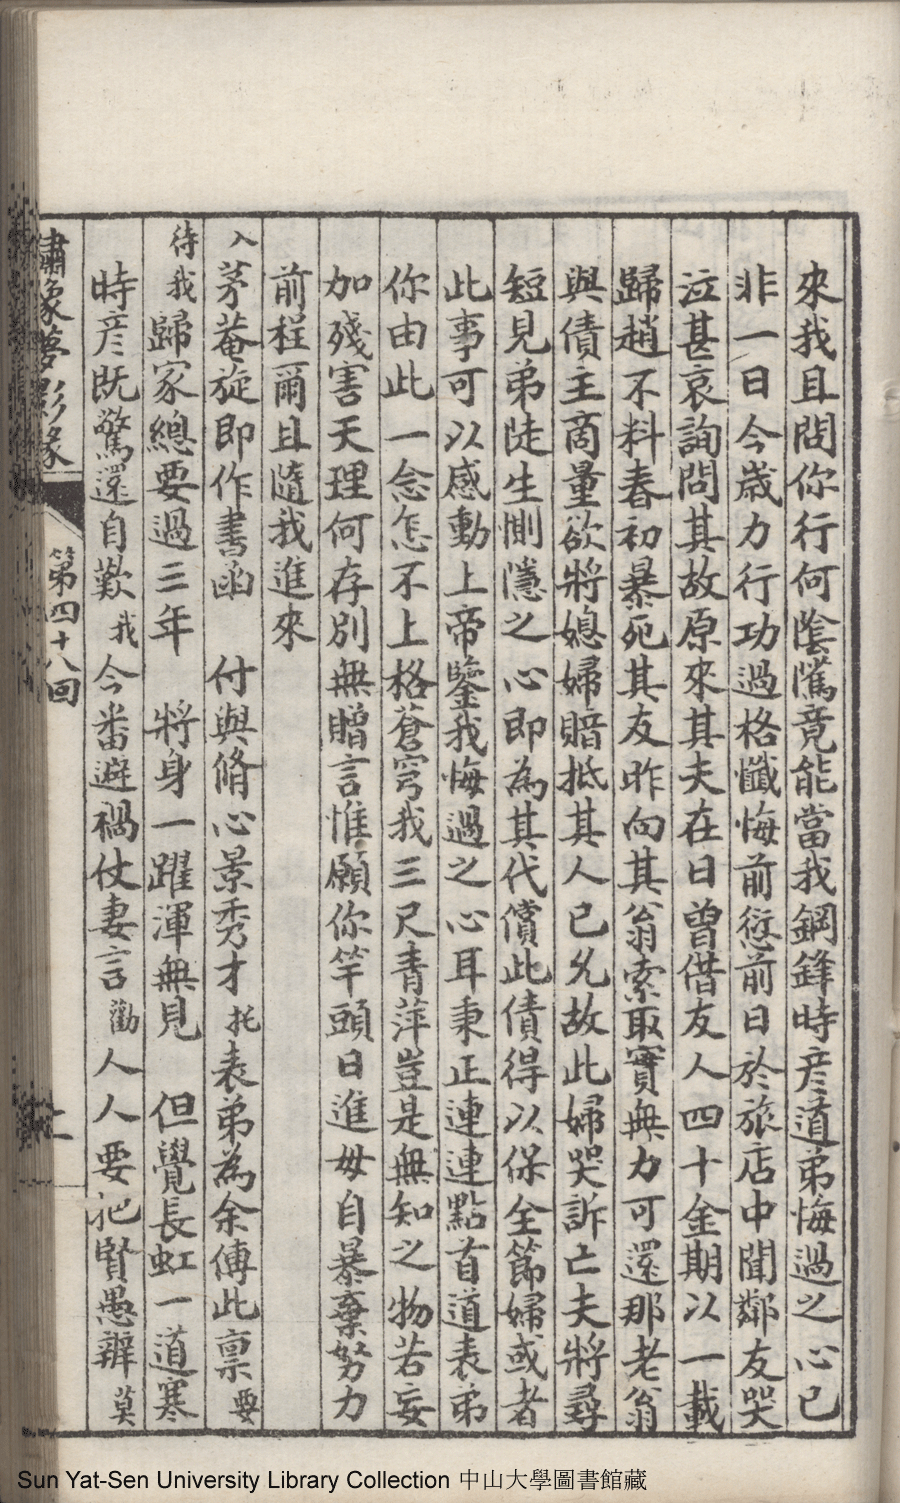 來我且問你行何陰騭竟能當我鋼鋒時彦道弟悔過之心已
非一日今歲力行功過格懺悔前愆前日於旅店中聞鄰友哭
泣甚哀詢問其故原來其夫在日曾借友人四十金期以一載
歸趙不料春初暴死其友昨向其翁索取實無力可還那老翁
與債主商量欲將媳婦賠抵其人已允故此婦哭訴亡夫將尋
短見弟陡生惻隱之心即為其代償此債得以保全節婦或者
此事可以感動上帝鑒我悔過之心耳秉正連連點首道表弟
你由此一念怎不上格蒼穹我三尺青萍豈是無知之物若妄
加殘害天理何存別無贈言惟願你竿頭日進毋自暴棄努力
前程爾且隨我進來
入茅菴旋即作書函 付與脩心景秀才托表弟為余傳此禀要
待我歸家總要過三年 將身一躍渾無見 但覺長虹一道寒
時彦既驚還自歎我今番避禍仗妻言勸人人要把賢愚辦莫
繡像夢影緣 第四十八回 上
Sun Yat-Sen University Library Collection 中山大學圖書館藏